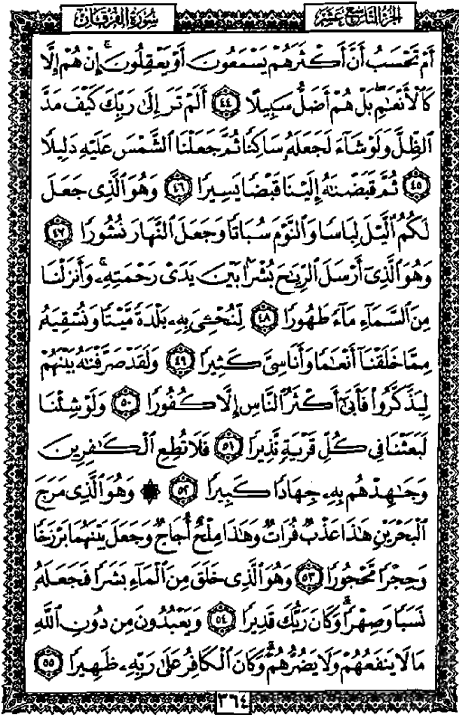 الجزء التاسع عشر
سورة الفرقان
أَمْ تَحْسَبُ أَنَّ أَكْثَرَهُمْ يَسْمَعُونَ أَوْ يَعْقِلُونَۚ إِنْ هُمْ إِلَّا
كَٱلْأَنْعَٰمِۖ بَلْ هُمْ أَضَلُّ سَبِيلًا ٤٤ أَلَمْ تَرَ إِلَىٰ رَبِّكَ كَيْفَ مَدَّ
ٱلظِّلَّ وَلَوْ شَآءَ لَجَعَلَهُۥ سَاكِنًا ثُمَّ جَعَلْنَا ٱلشَّمْسَ عَلَيْهِ دَلِيلًا
٤٥ ثُمَّ قَبَضْنَٰهُ إِلَيْنَا قَبْضًا يَسِيرًا ٤٦ وَهُوَ ٱلَّذِى جَعَلَ
لَكُمُ ٱلَّيْلَ لِبَاسًا وَٱلنَّوْمَ سُبَاتًا وَجَعَلَ ٱلنَّهَارَ نُشُورًا ٤٧
وَهُوَ ٱلَّذِىٓ أَرْسَلَ ٱلرِّيَٰحَ بُشْرًۢا بَيْنَ يَدَىْ رَحْمَتِهِۦۚ وَأَنزَلْنَا
مِنَ ٱلسَّمَآءِ مَآءً طَهُورًا ٤٨ لِّنُحْـِۧىَ بِهِۦ بَلْدَةً مَّيْتًا وَنُسْقِيَهُۥ
مِمَّا خَلَقْنَآ أَنْعَٰمًا وَأَنَاسِىَّ كَثِيرًا ٤٩ وَلَقَدْ صَرَّفْنَٰهُ بَيْنَهُمْ
لِيَذَّكَّرُوا۟ فَأَبَىٰٓ أَكْثَرُ ٱلنَّاسِ إِلَّا كُفُورًا ٥٠ وَلَوْ شِئْنَا
لَبَعَثْنَا فِى كُلِّ قَرْيَةٍ نَّذِيرًا ٥١ فَلَا تُطِعِ ٱلْكَٰفِرِينَ
وَجَٰهِدْهُم بِهِۦ جِهَادًا كَبِيرًا ٥٢ ۞ وَهُوَ ٱلَّذِى مَرَجَ
ٱلْبَحْرَيْنِ هَٰذَا عَذْبٌ فُرَاتٌ وَهَٰذَا مِلْحٌ أُجَاجٌ وَجَعَلَ بَيْنَهُمَا بَرْزَخًا
وَحِجْرًا مَّحْجُورًا ٥٣ وَهُوَ ٱلَّذِى خَلَقَ مِنَ ٱلْمَآءِ بَشَرًا فَجَعَلَهُۥ
نَسَبًا وَصِهْرًاۗ وَكَانَ رَبُّكَ قَدِيرًا ٥٤ وَيَعْبُدُونَ مِن دُونِ ٱللَّهِ
مَا لَا يَنفَعُهُمْ وَلَا يَضُرُّهُمْۗ وَكَانَ ٱلْكَافِرُ عَلَىٰ رَبِّهِۦ ظَهِيرًا ٥٥
٣٦٤